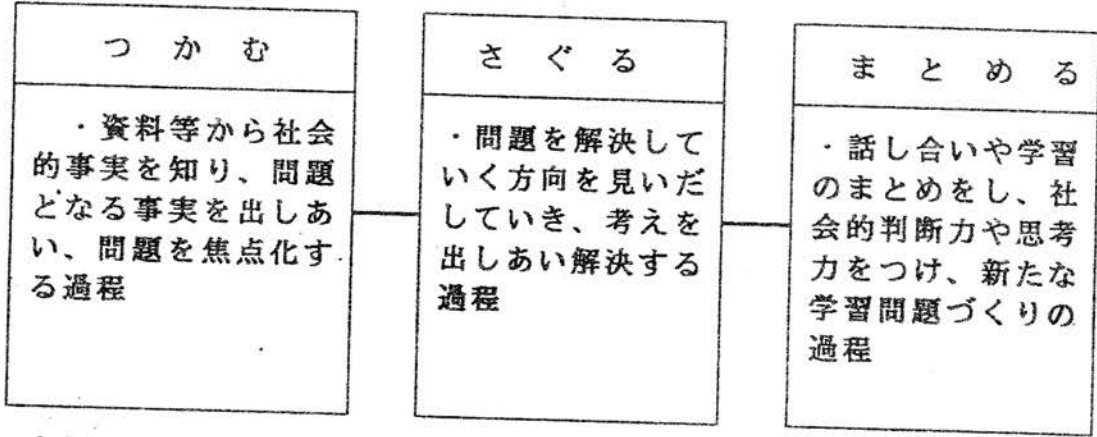 つかむ
・資料等から社会
的事実を知り、問題
となる事実を出しあ
い、問題を焦点化す
る過程
さぐる
・問題を解決して
いく方向を見いだ
していき、考えを
出しあい解決する
過程
まとめる
・話し合いや学習
のまとめをし、社
会的判断力や思考
力をつけ、新たな
学習問題づくりの
過程